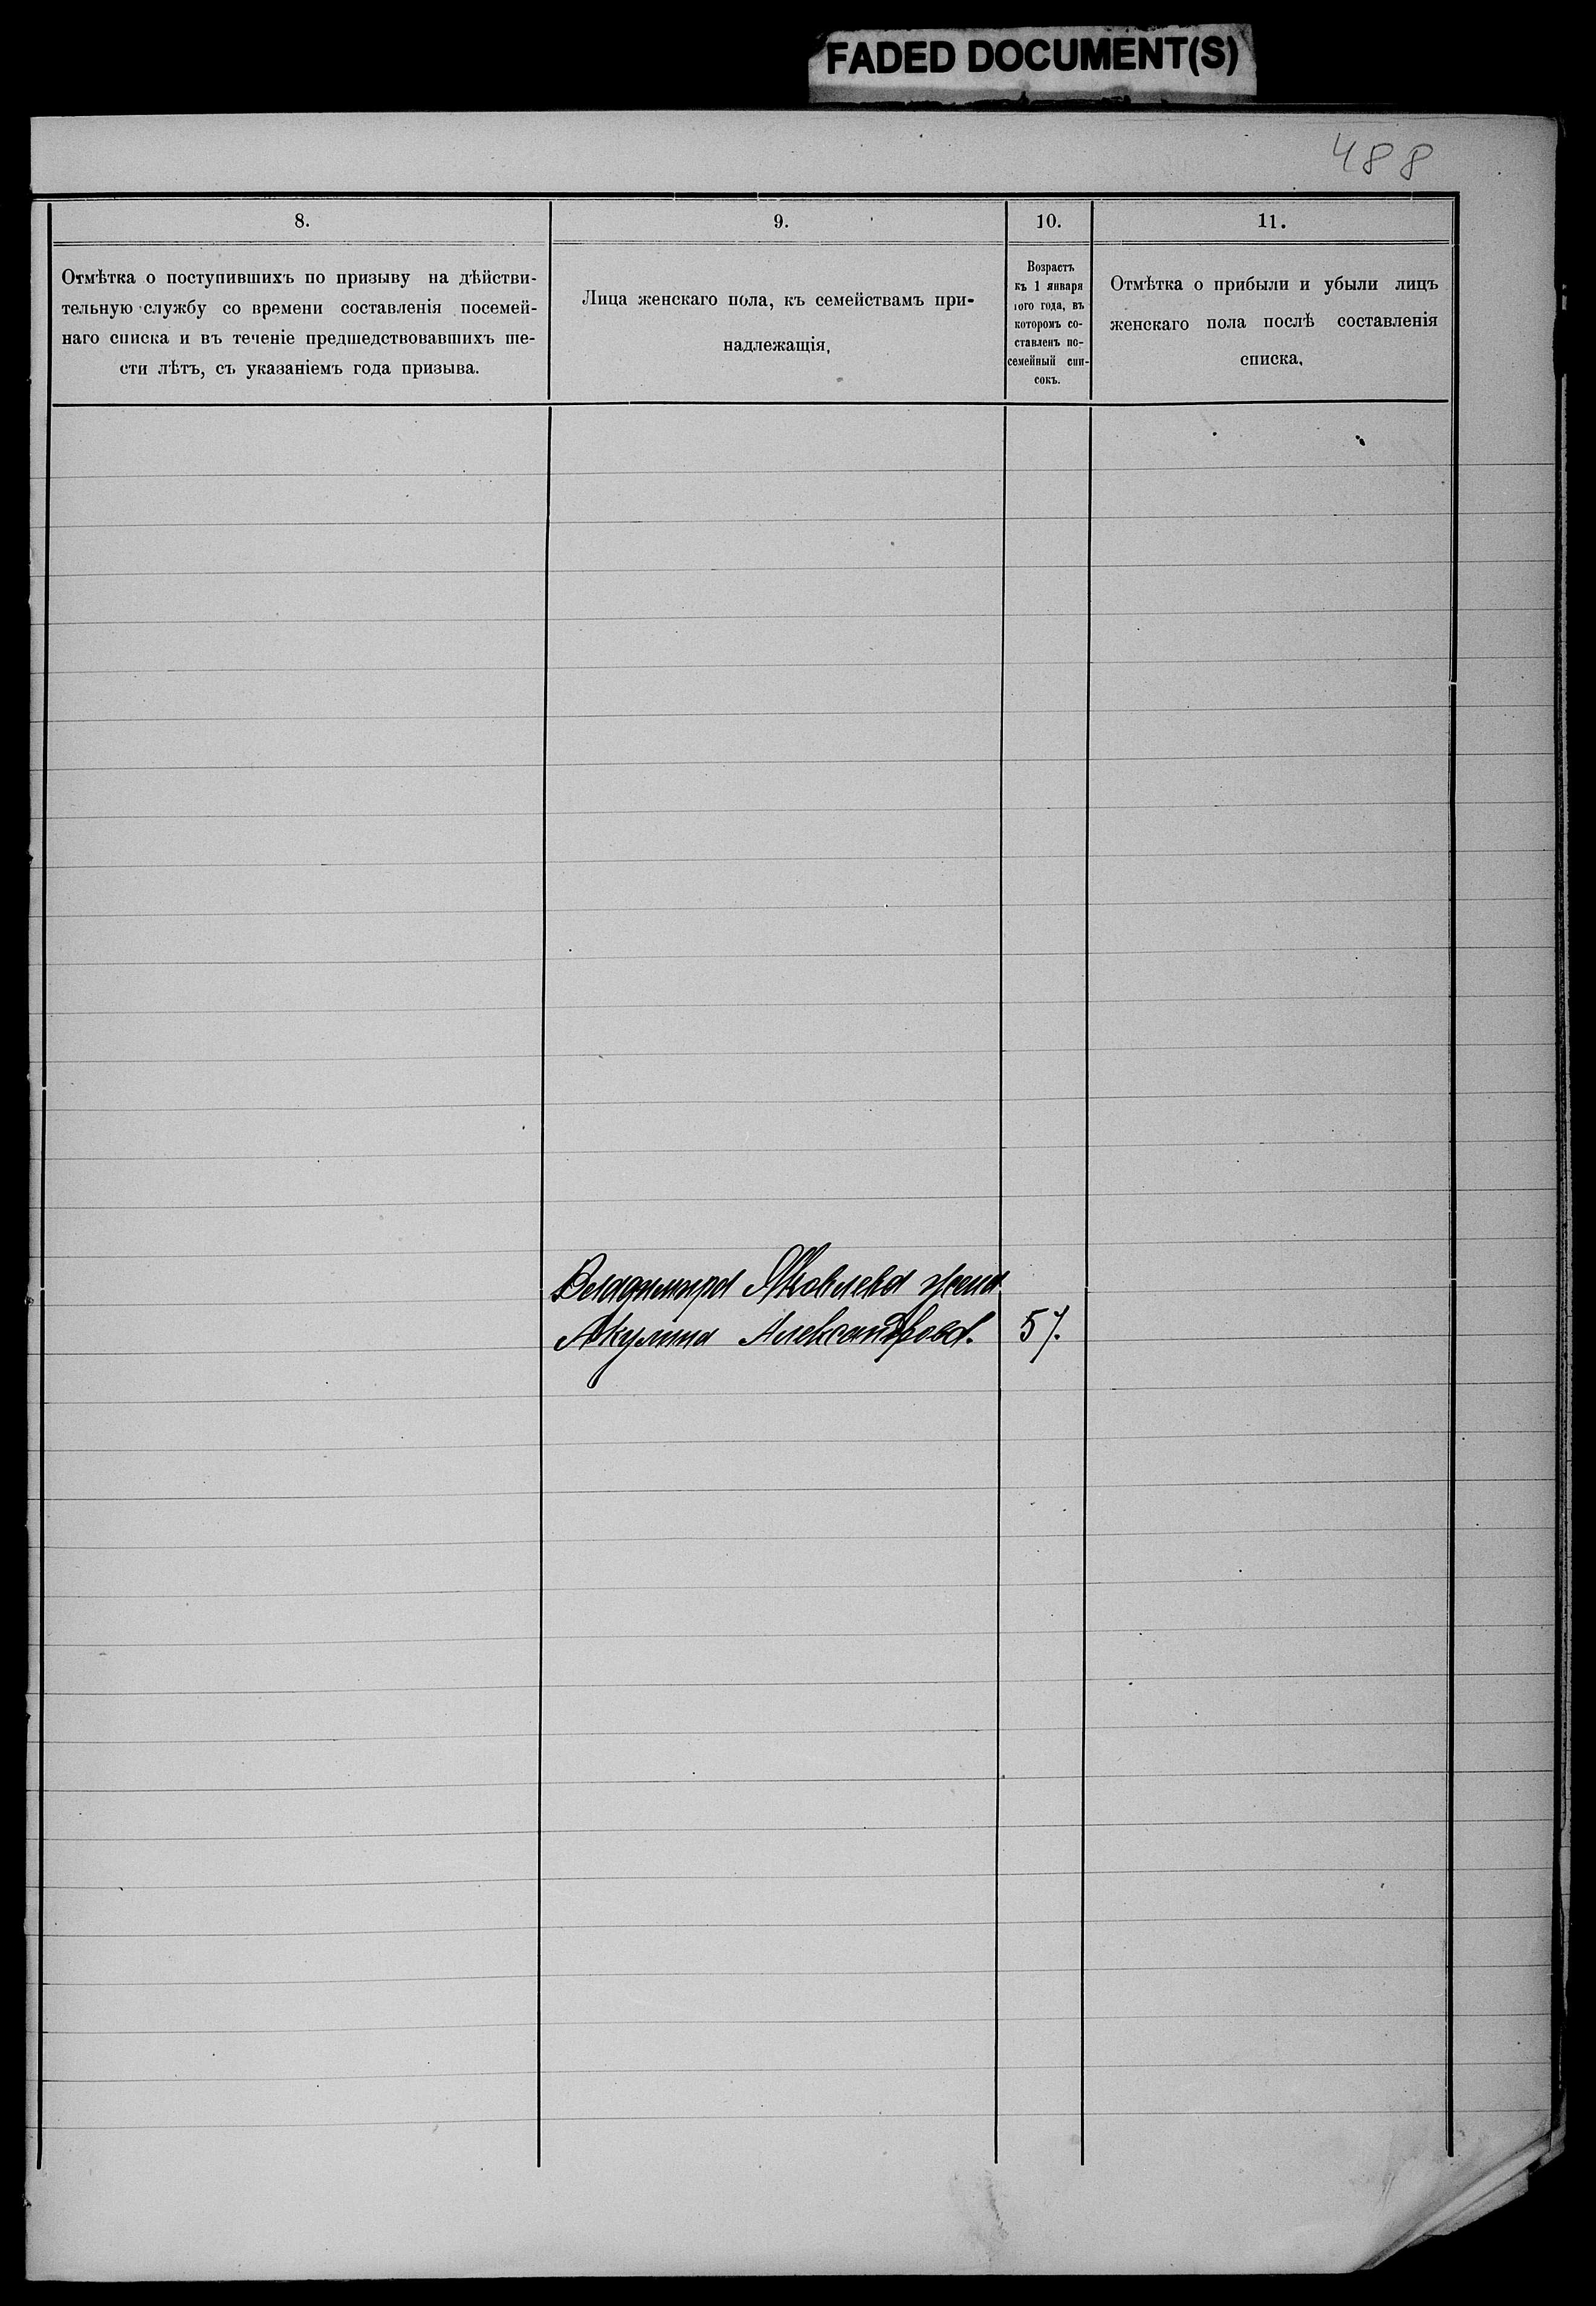 FADED DOCUMENT(S)
488
8.
Отмѣтка о поступившихъ по призыву на дѣйстви-
тельную службу со времени составленія посемей-
наго списка и въ теченіе предшедствовавшихъ ше-
сти лѣтъ, съ указаніемъ года призыва.
9.
Лица женскаго пола, къ семействамъ при-
надлежащія,
10.
Возрастъ
къ 1 января
того года, въ
которомъ со-
ставленъ по-
семейный спи-
сокъ.
11.
Отмѣтка о прибыли и убыли лицъ
женскаго пола послѣ составленія
списка.
Владимира Яковлева жена
Акулина Александрова. 57.